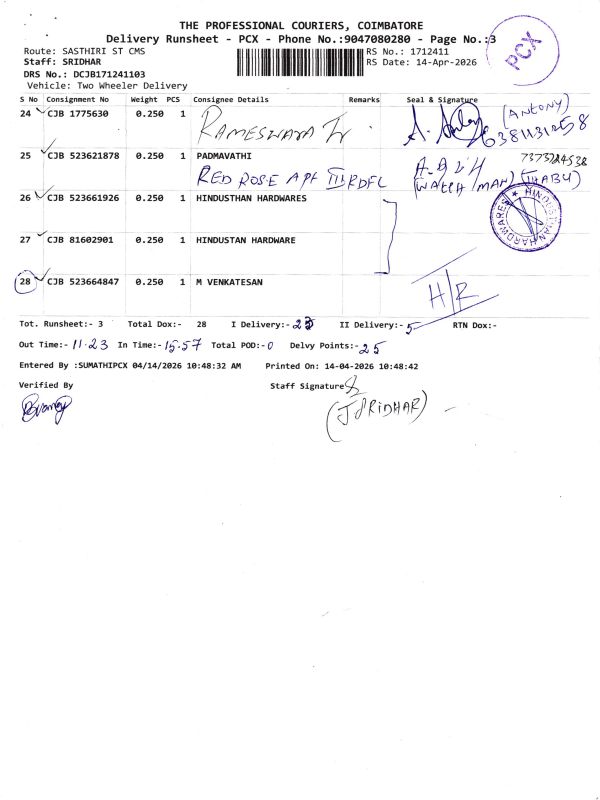 THE PROFESSIONAL COURIERS, COIMBATORE
Delivery Runsheet - PCX - Phone No.:9047080280 - Page No.:3
PCX
Route: SASTHIRI ST CMS
RS No.: 1712411
Staff: SRIDHAR
RS Date: 14-Apr-2026
DRS No.: DCJB171241103
Vehicle: Two Wheeler Delivery
S No Consignment No Weight PCS Consignee Details Remarks Seal & Signature
24 CJB 1775630 0.250 1 RAMESWARA Tr (ANTONY)
25 CJB 523621878 0.250 1 PADMAVATHI
RED ROSE APT III RDFL (WATCH MAN) (THABU)
26 CJB 523661926 0.250 1 HINDUSTHAN HARDWARES
HINDUSTHAN HARDWARES
27 CJB 81602901 0.250 1 HINDUSTAN HARDWARE
28 CJB 523664847 0.250 1 M VENKATESAN
H/R
Tot. Runsheet:- 3 Total Dox:- 28 I Delivery:- II Delivery:- 5 RTN Dox:-
Out Time:- 11.23 In Time:- 15.57 Total POD:- 0 Delvy Points:- 25
Entered By :SUMATHIPCX 04/14/2026 10:48:32 AM Printed On: 14-04-2026 10:48:42
Verified By Staff Signature
(J SRIDHAR)